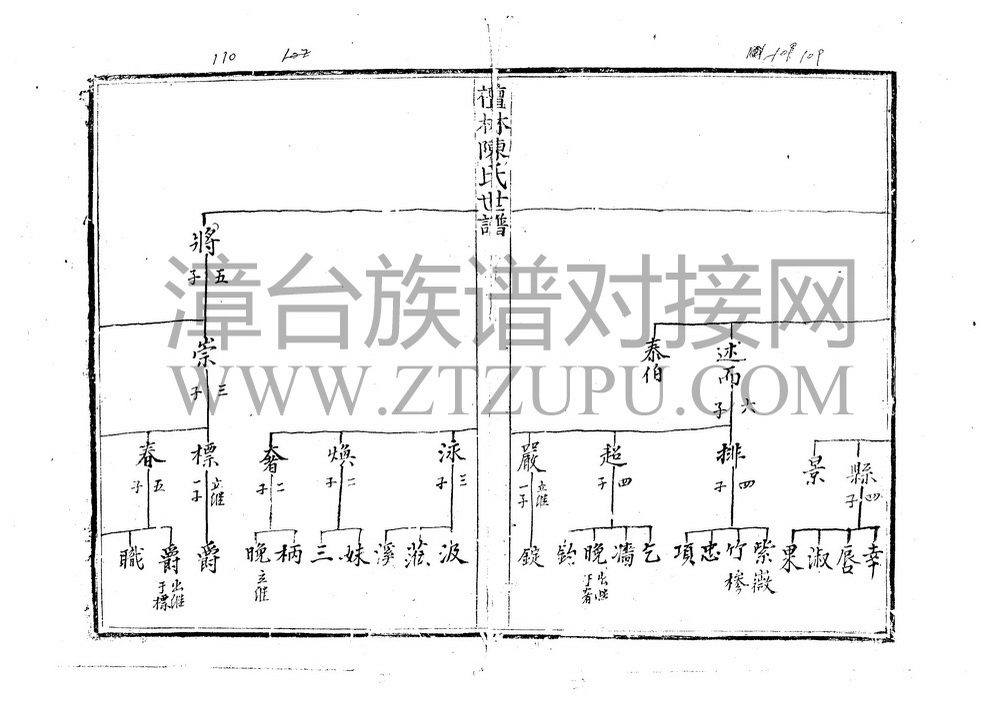 110
109
檀林陳氏世譜
漳台族谱对接网
WWW.ZTZUPU.COM
述而
六子
泰伯
縣
四子
景
排
四子
超
四子
嚴
立继
一子
幸
唇
淑
果
紫薇
竹
忠
項
乞
晚
出继于奢
錠
將
五子
崇
三子
泳
三子
煥
二子
奢
二子
標
立继
一子
春
五子
汲
溪
妹
三
柄
晚
立继
爵
爵
出继于標
職